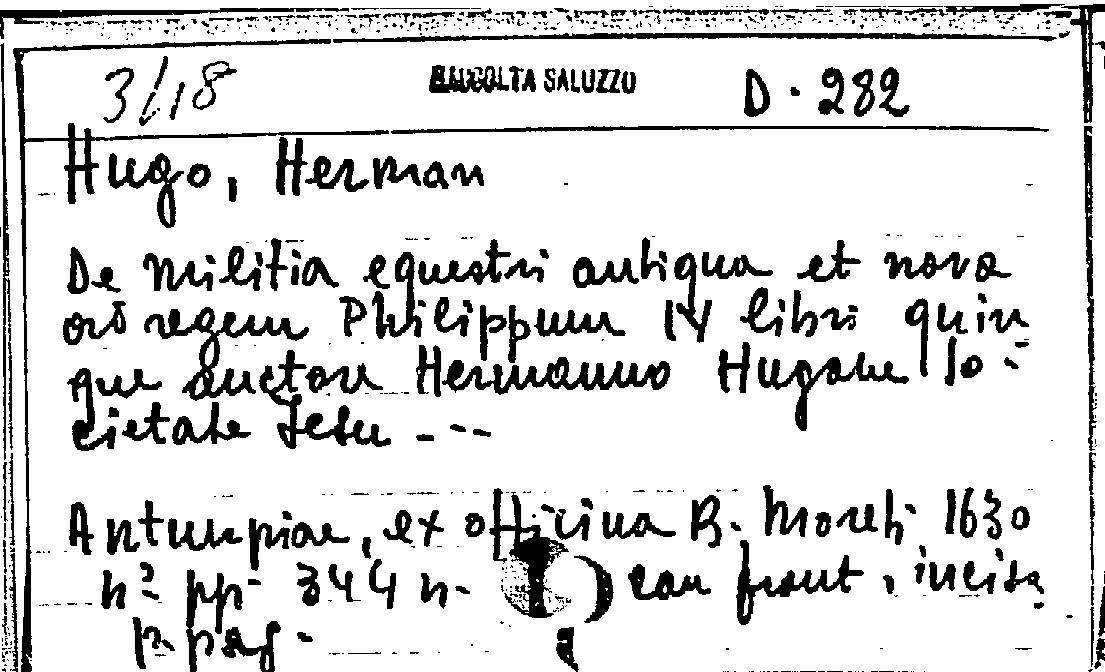 3/18 RACCOLTA SALUZZO D. 282
Hugo, Herman
De militia equestri antiqua et nova
ad regem Philippum IV libri quin
que auctore Hermanno Hugone So-
cietate Jesu ---
Antuerpiae, ex officina B. Moreti 1630
pp. 344 con front. incisa